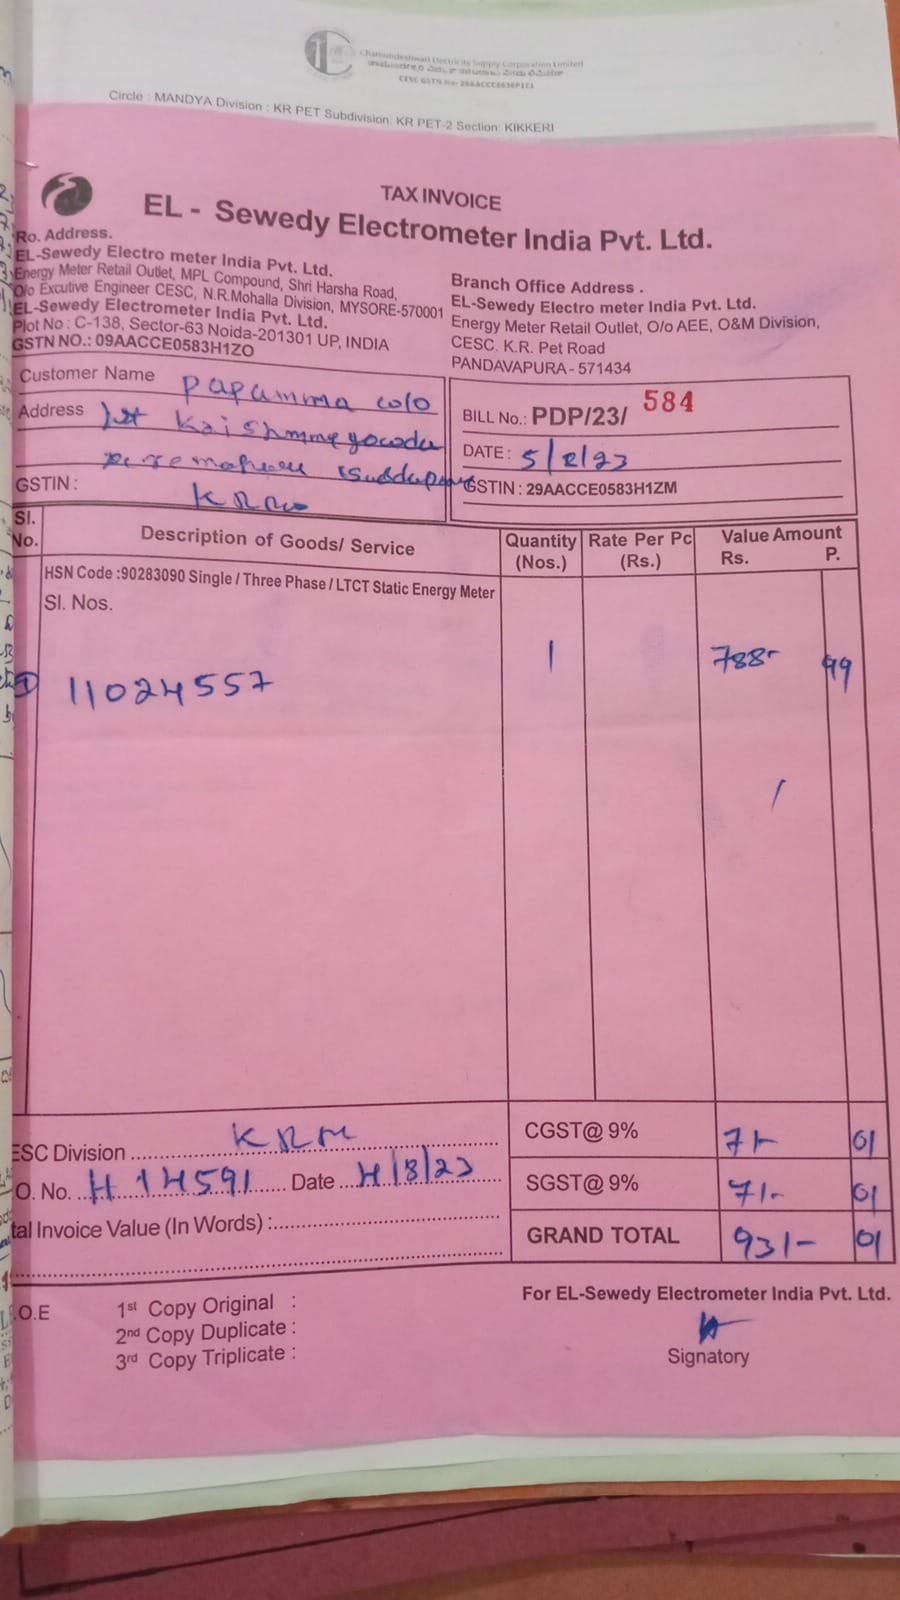 Chamundeshwari Electricity Supply Corporation Limited
Circle : MANDYA Division : KR PET Subdivision: KR PET-2 Section: KIKKERI
TAX INVOICE
EL - Sewedy Electrometer India Pvt. Ltd.
Ro. Address.
EL-Sewedy Electro meter India Pvt. Ltd.
Energy Meter Retail Outlet, MPL Compound, Shri Harsha Road,
O/o Excutive Engineer CESC, N.R.Mohalla Division, MYSORE-570001
EL-Sewedy Electrometer India Pvt. Ltd.
Plot No : C-138, Sector-63 Noida-201301 UP, INDIA
GSTN NO.: 09AACCE0583H1ZO
Branch Office Address .
EL-Sewedy Electro meter India Pvt. Ltd.
Energy Meter Retail Outlet, O/o AEE, O&M Division,
CESC. K.R. Pet Road
PANDAVAPURA - 571434
Customer Name papamma
Address
GSTIN :
BILL No.: PDP/23/ 584
DATE : 5/8/23
GSTIN : 29AACCE0583H1ZM
Sl. No. Description of Goods/ Service Quantity (Nos.) Rate Per Pc (Rs.) Value Amount Rs. P.
HSN Code :90283090 Single / Three Phase / LTCT Static Energy Meter
Sl. Nos.
① 11024557 1 788- 99
ESC Division KRM CGST@ 9% 71- 01
O. No. H 14591 Date 4/8/23 SGST@ 9% 71- 01
tal Invoice Value (In Words) : GRAND TOTAL 931- 01
.O.E
1st Copy Original :
2nd Copy Duplicate :
3rd Copy Triplicate :
For EL-Sewedy Electrometer India Pvt. Ltd.
Signatory